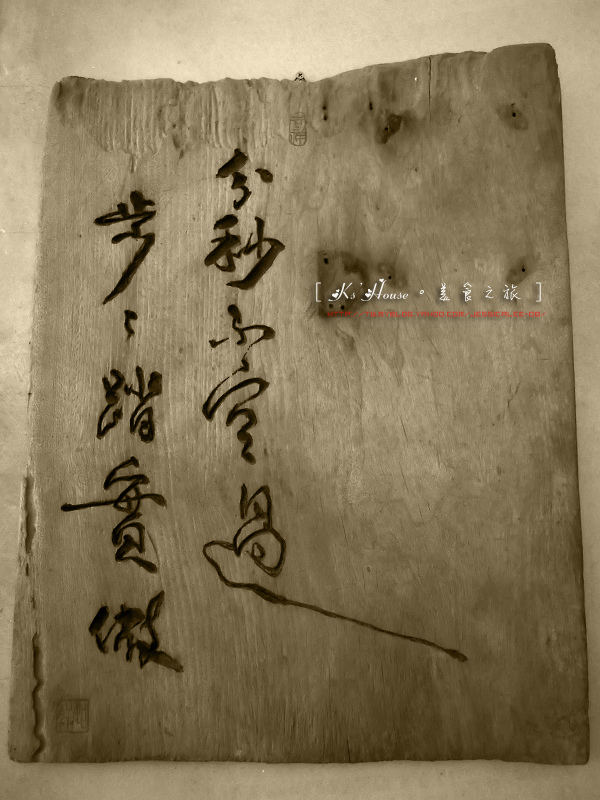 分秒不空過
步〻踏實做
[ Ks' House。美食之旅 ]